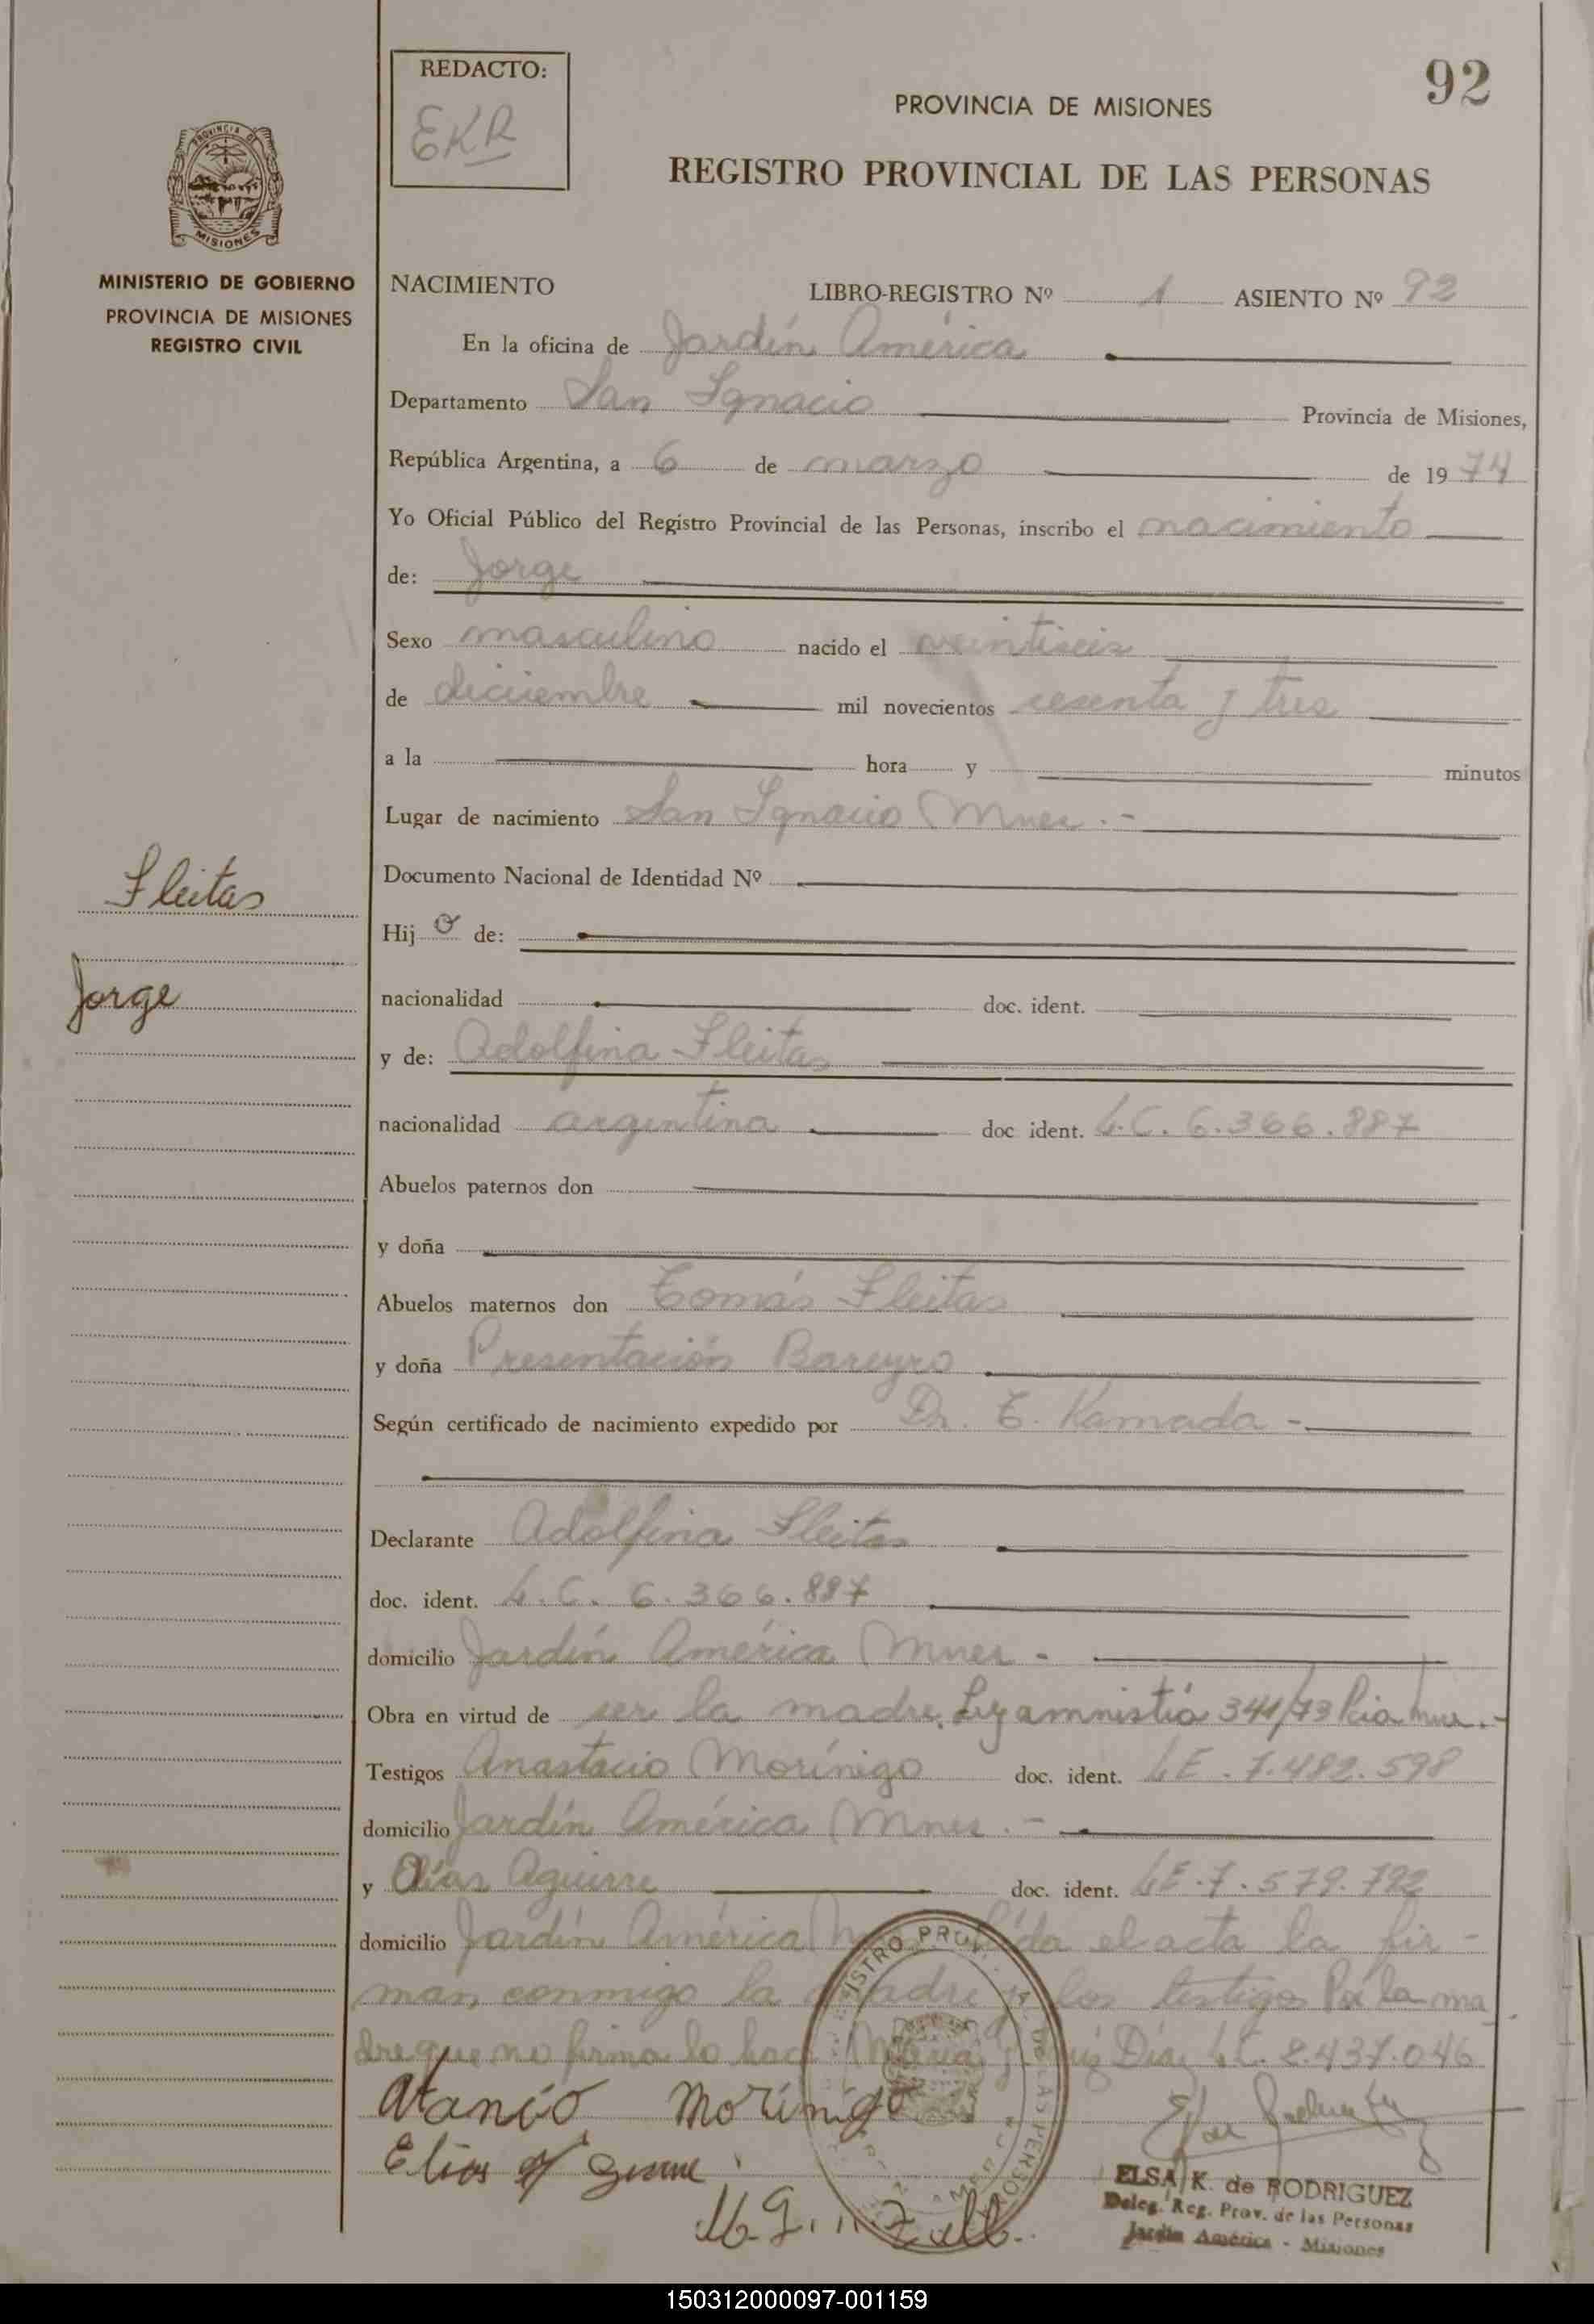 REDACTO:
EKR
92
PROVINCIA DE MISIONES
REGISTRO PROVINCIAL DE LAS PERSONAS
PROVINCIA DE
MISIONES
MINISTERIO DE GOBIERNO
PROVINCIA DE MISIONES
REGISTRO CIVIL
NACIMIENTO LIBRO-REGISTRO Nº 1 ASIENTO Nº 92
En la oficina de Jardín América
Departamento San Ignacio Provincia de Misiones,
República Argentina, a 6 de marzo de 1974
Yo Oficial Público del Registro Provincial de las Personas, inscribo el nacimiento
de: Jorge
Sexo masculino nacido el veintiseis
de diciembre mil novecientos sesenta y tres
a la hora y minutos
Lugar de nacimiento San Ignacio Mnes.-
Documento Nacional de Identidad Nº
Fleitas
Hijo de:
Jorge
nacionalidad doc. ident.
y de: Adolfina Fleitas
nacionalidad argentina doc ident. L.C. 6.366.887
Abuelos paternos don
y doña
Abuelos maternos don Tomás Fleitas
y doña Presentación Bareyro
Según certificado de nacimiento expedido por Dr. T. Kamada -
Declarante Adolfina Fleitas
doc. ident. L.C. 6.366.887
domicilio Jardín América Mnes -
Obra en virtud de ser la madre. Ley amnistía 341/73 Pcia Mnes.-
Testigos Anastacio Morínigo doc. ident. LE. 7.482.598
domicilio Jardín América Mnes.-
y Elías Aguirre doc. ident. LE.7.579.722
domicilio Jardín América el acta la fir-
man conmigo la madre y los testigos Po la ma
dre que no firma lo hace María Ruiz Diaz L.C. 2.437.046
Morínigo
Elias
ELSA K. de RODRIGUEZ
Deleg. Reg. Prov. de las Personas
Jardín América - Misiones
150312000097-001159